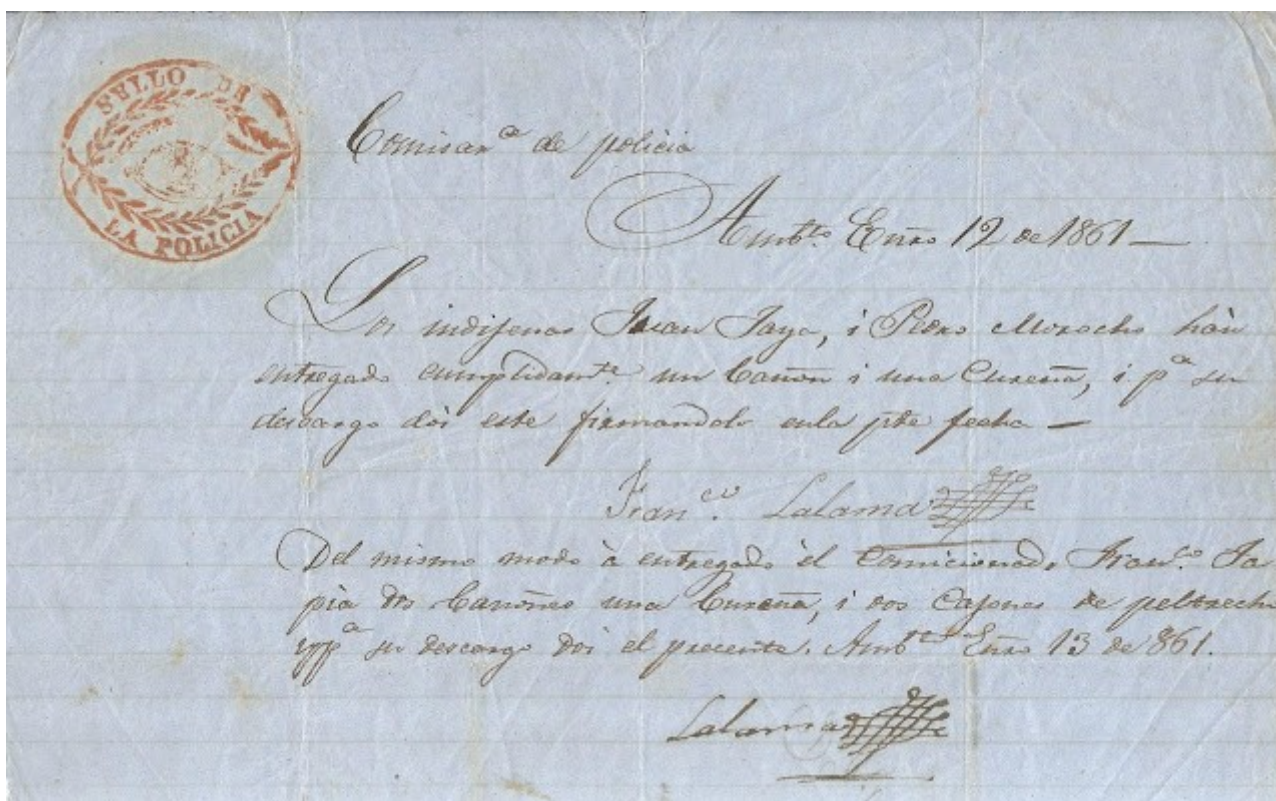 SELLO DE
LA POLICIA
Comisar^a de policia
Amb^to Enro 12 de 1861 —
Los indijenas Juan Jaya, i Pedro Morocho hán
entregado cumplidam^te un Cañon i una Cureña, i p^a su
descargo dói este firmandolo enla pte fecha —
Fran^co Lalama
Del mismo modo à entregado él Comicionado Fran^co Ta
pia dos Cañones una Cureña, i dos Cajones de peltrechos
su descargo doi el precente. Amb^to Enro 13 de 861.
Lalama